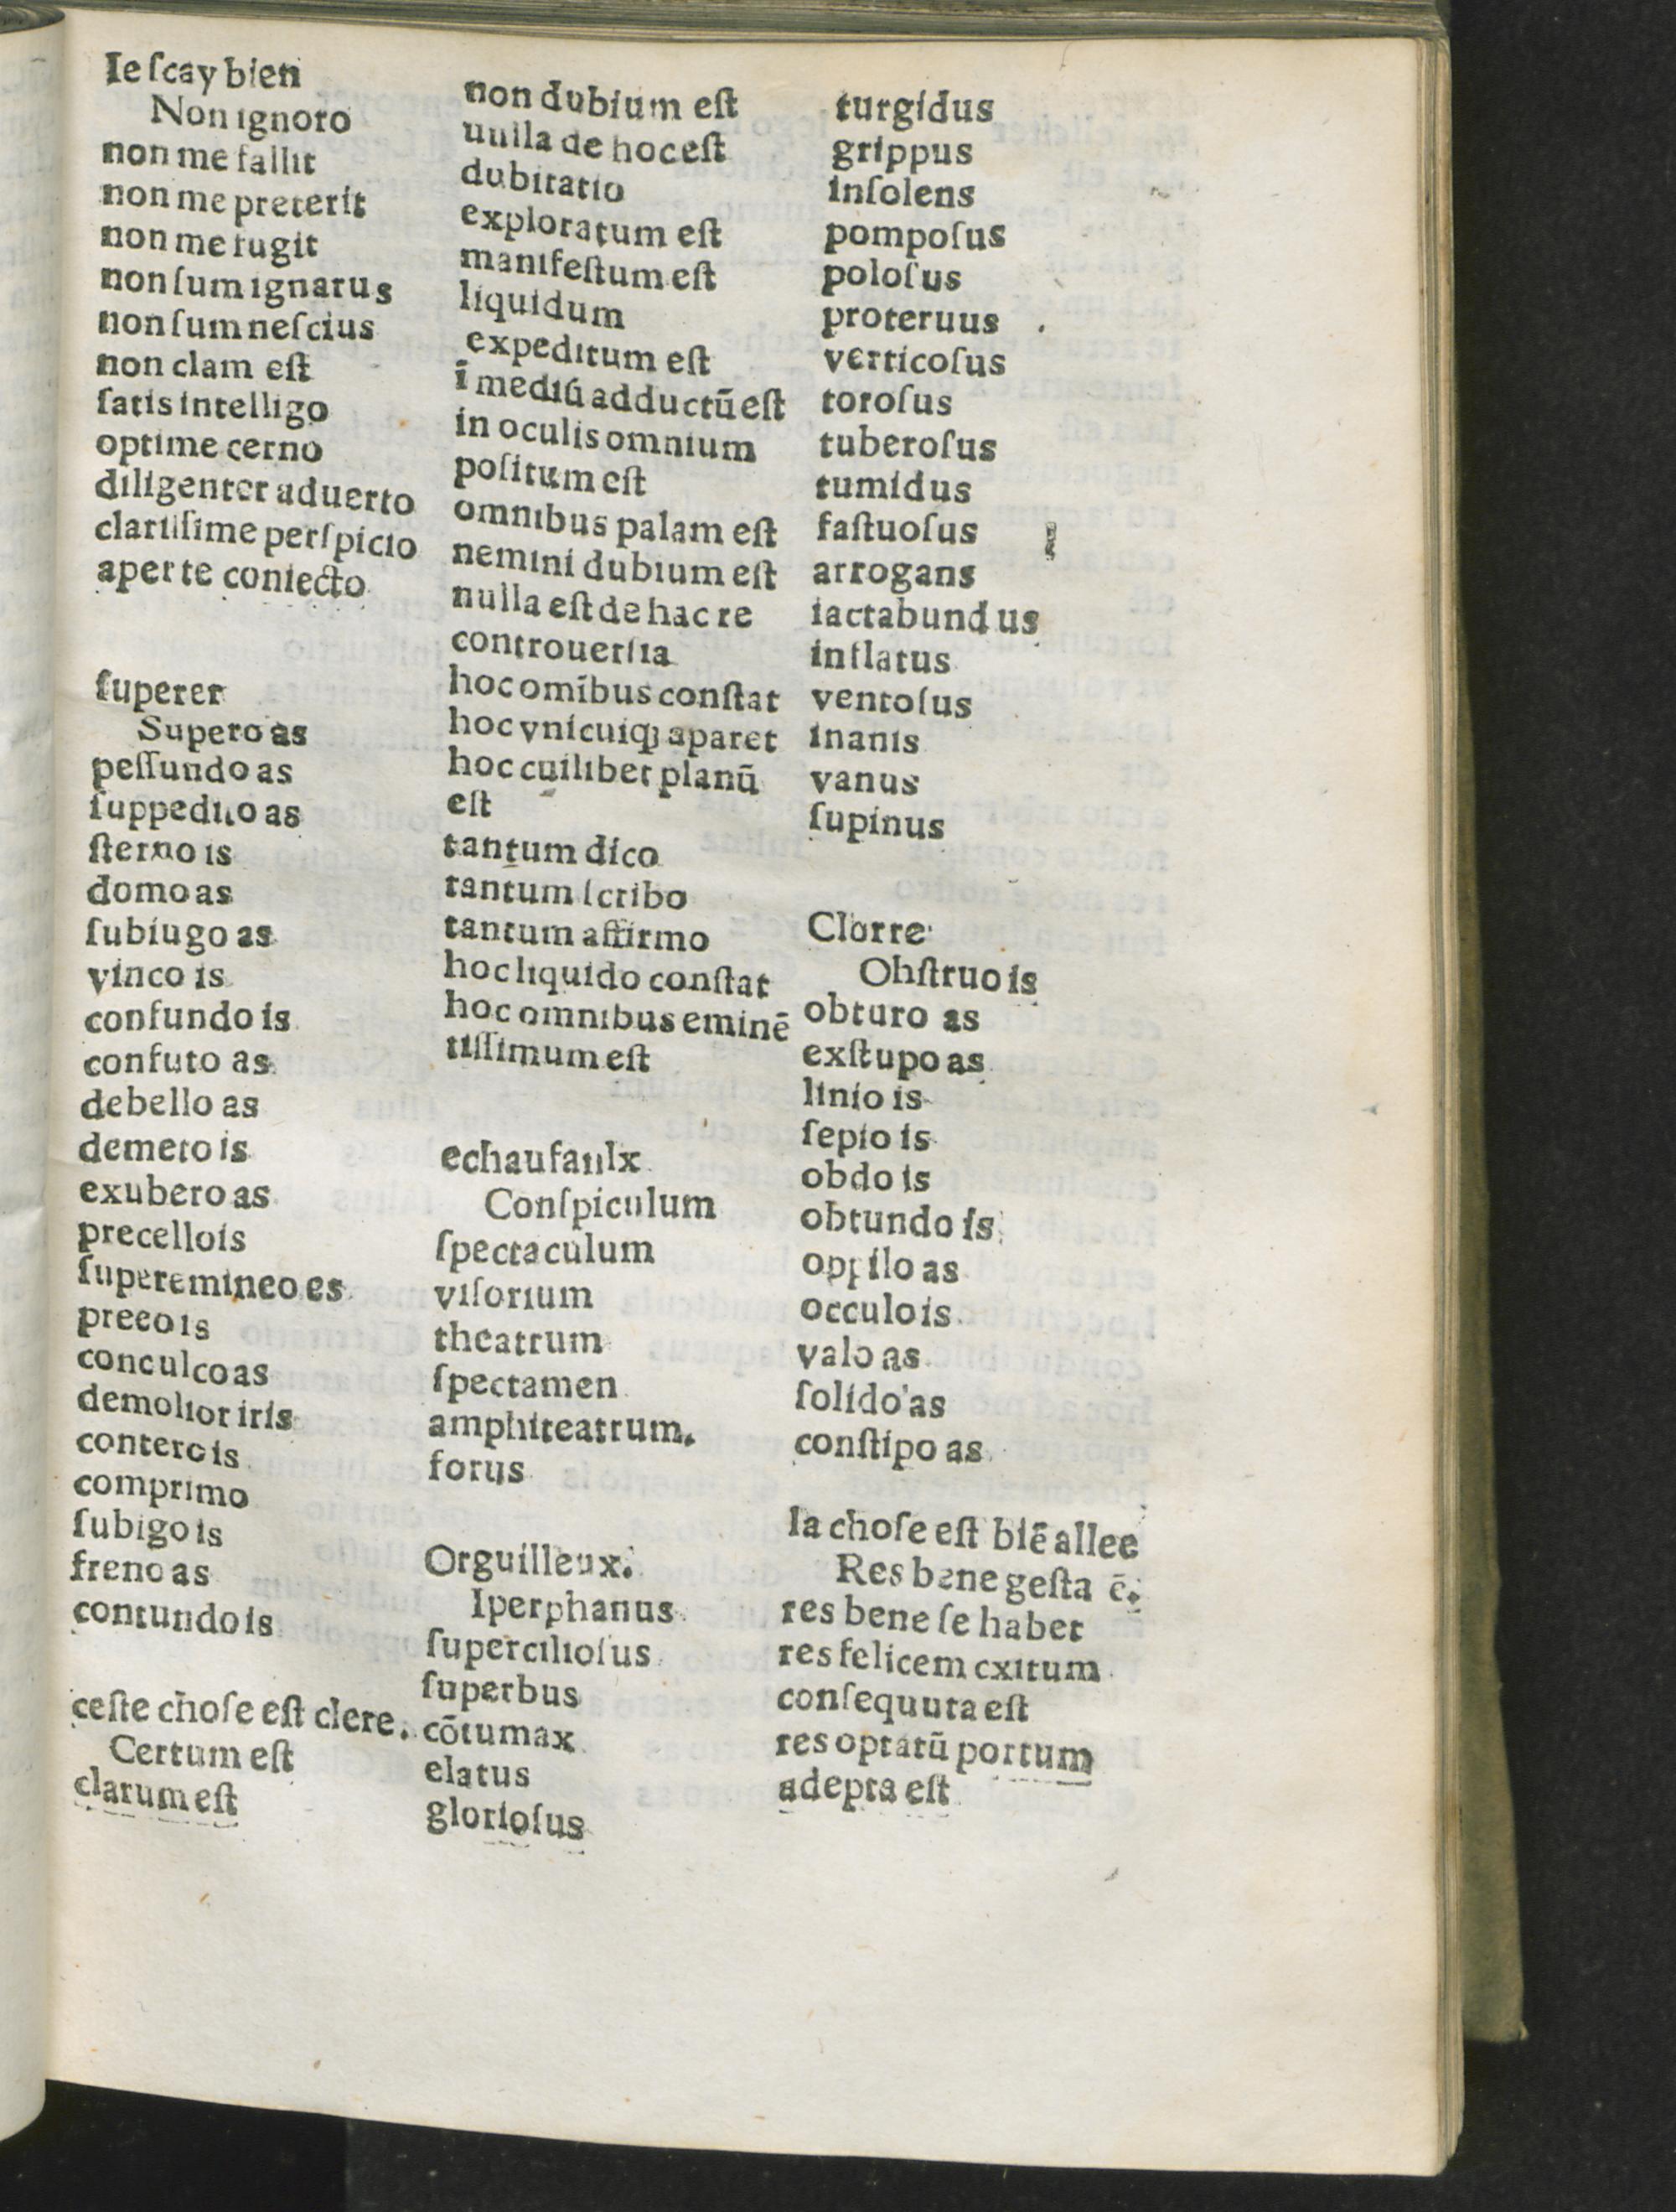 Ie ſcay bien
Non ignoro
non me fallit
non me preterit
non me fugit
non ſum ignarus
non ſum neſcius
non clam eſt
ſatis intelligo
optime cerno
diligenter aduerto
clariſſime perſpicio
aperte coniecto
ſuperer
Supero as
peſſundo as
ſuppedito as
ſterno is
domo as
ſubiugo as
vinco is
confundo is
confuto as
debello as
demeto is
exubero as
precello is
ſuperemineo es
preeo is
conculco as
demolior iris
contero is
comprimo
ſubigo is
freno as
contundo is
ceſte choſe eſt clere.
Certum eſt
clarum eſt
non dubium eſt
uulla de hoc eſt
dubitatio
exploratum eſt
manifeſtum eſt
liquidum
expeditum eſt
ī mediū adductū eſt
in oculis omnium
poſitum eſt
omnibus palam eſt
nemini dubium eſt
nulla eſt de hac re
controuerſia
hoc omībus conſtat
hoc vnicuiqꝫ aparet
hoc cuilibet planū
eſt
tantum dico
tantum ſcribo
tantum affirmo
hoc liquido conſtat
hoc omnibus eminē
tiſſimum eſt
echaufaulx
Conſpiculum
ſpectaculum
viſorium
theatrum
ſpectamen
amphiteatrum.
forus
Orguilleux.
Iperphanus
ſupercilioſus
ſuperbus
cōtumax
elatus
glorioſus
turgidus
grippus
inſolens
pompoſus
poloſus
proteruus
verticoſus
toroſus
tuberoſus
tumidus
faſtuoſus
arrogans
iactabundus
inflatus
ventoſus
inanis
vanus
ſupinus
Clorre
Ohſtruo is
obturo as
exſtupo as
linio is
ſepio is
obdo is
obtundo is
oppilo as
occulo is
valo as
ſolido as
conſtipo as
la choſe eſt biē allee
Res bene geſta ē.
res bene ſe habet
res felicem exitum
conſequuta eſt
res optatū portum
adepta eſt